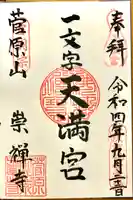 奉拝
令和四年九月二日
一文字天満宮
菅原山
崇禅寺